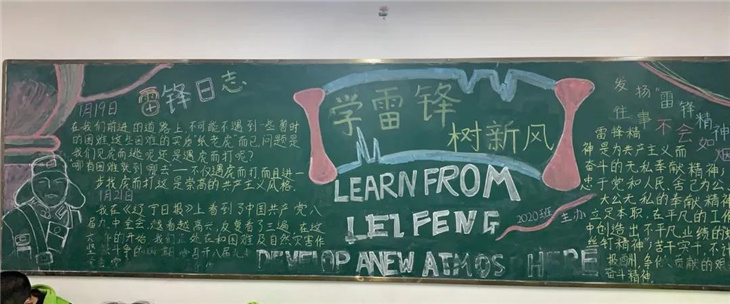 雷锋日志
1月19日
在我们前进的道路上，不可能不遇到一些暂时
的困难，这些困难的实质，纸老虎而已，问题是
我们见虎而逃呢，还是遇虎而打呢？
哪有困难就到哪去——不仅遇虎而打，而且进一
步找虎而打，这是崇高的共产主义风格。
1月21日
我在《辽宁日报》上看到了中国共产党八
届九中全会，越看越高兴，反复看了三遍，在这
学雷锋
树新风
LEARN FROM
LEI FENG
DEVELOP A NEW ATMOS HERE
2020班 主办
发扬"雷锋精神
往事不会如烟
雷锋精
神是为共产主义而
奋斗的无私奉献精神；
忠于党和人民、舍己为公、
大公无私的奉献精神；
立足本职、在平凡的工作
中创造出不平凡业绩的螺
丝钉精神；苦干实干、不计
报酬、争做贡献的艰
奋斗精神